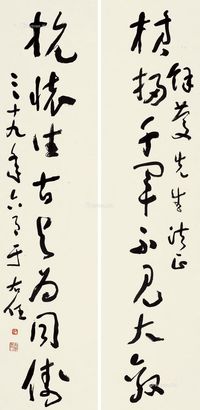 先生法正
橫掃千軍不見大敵
抗懷往古與為同儔
三十九年六月于右任